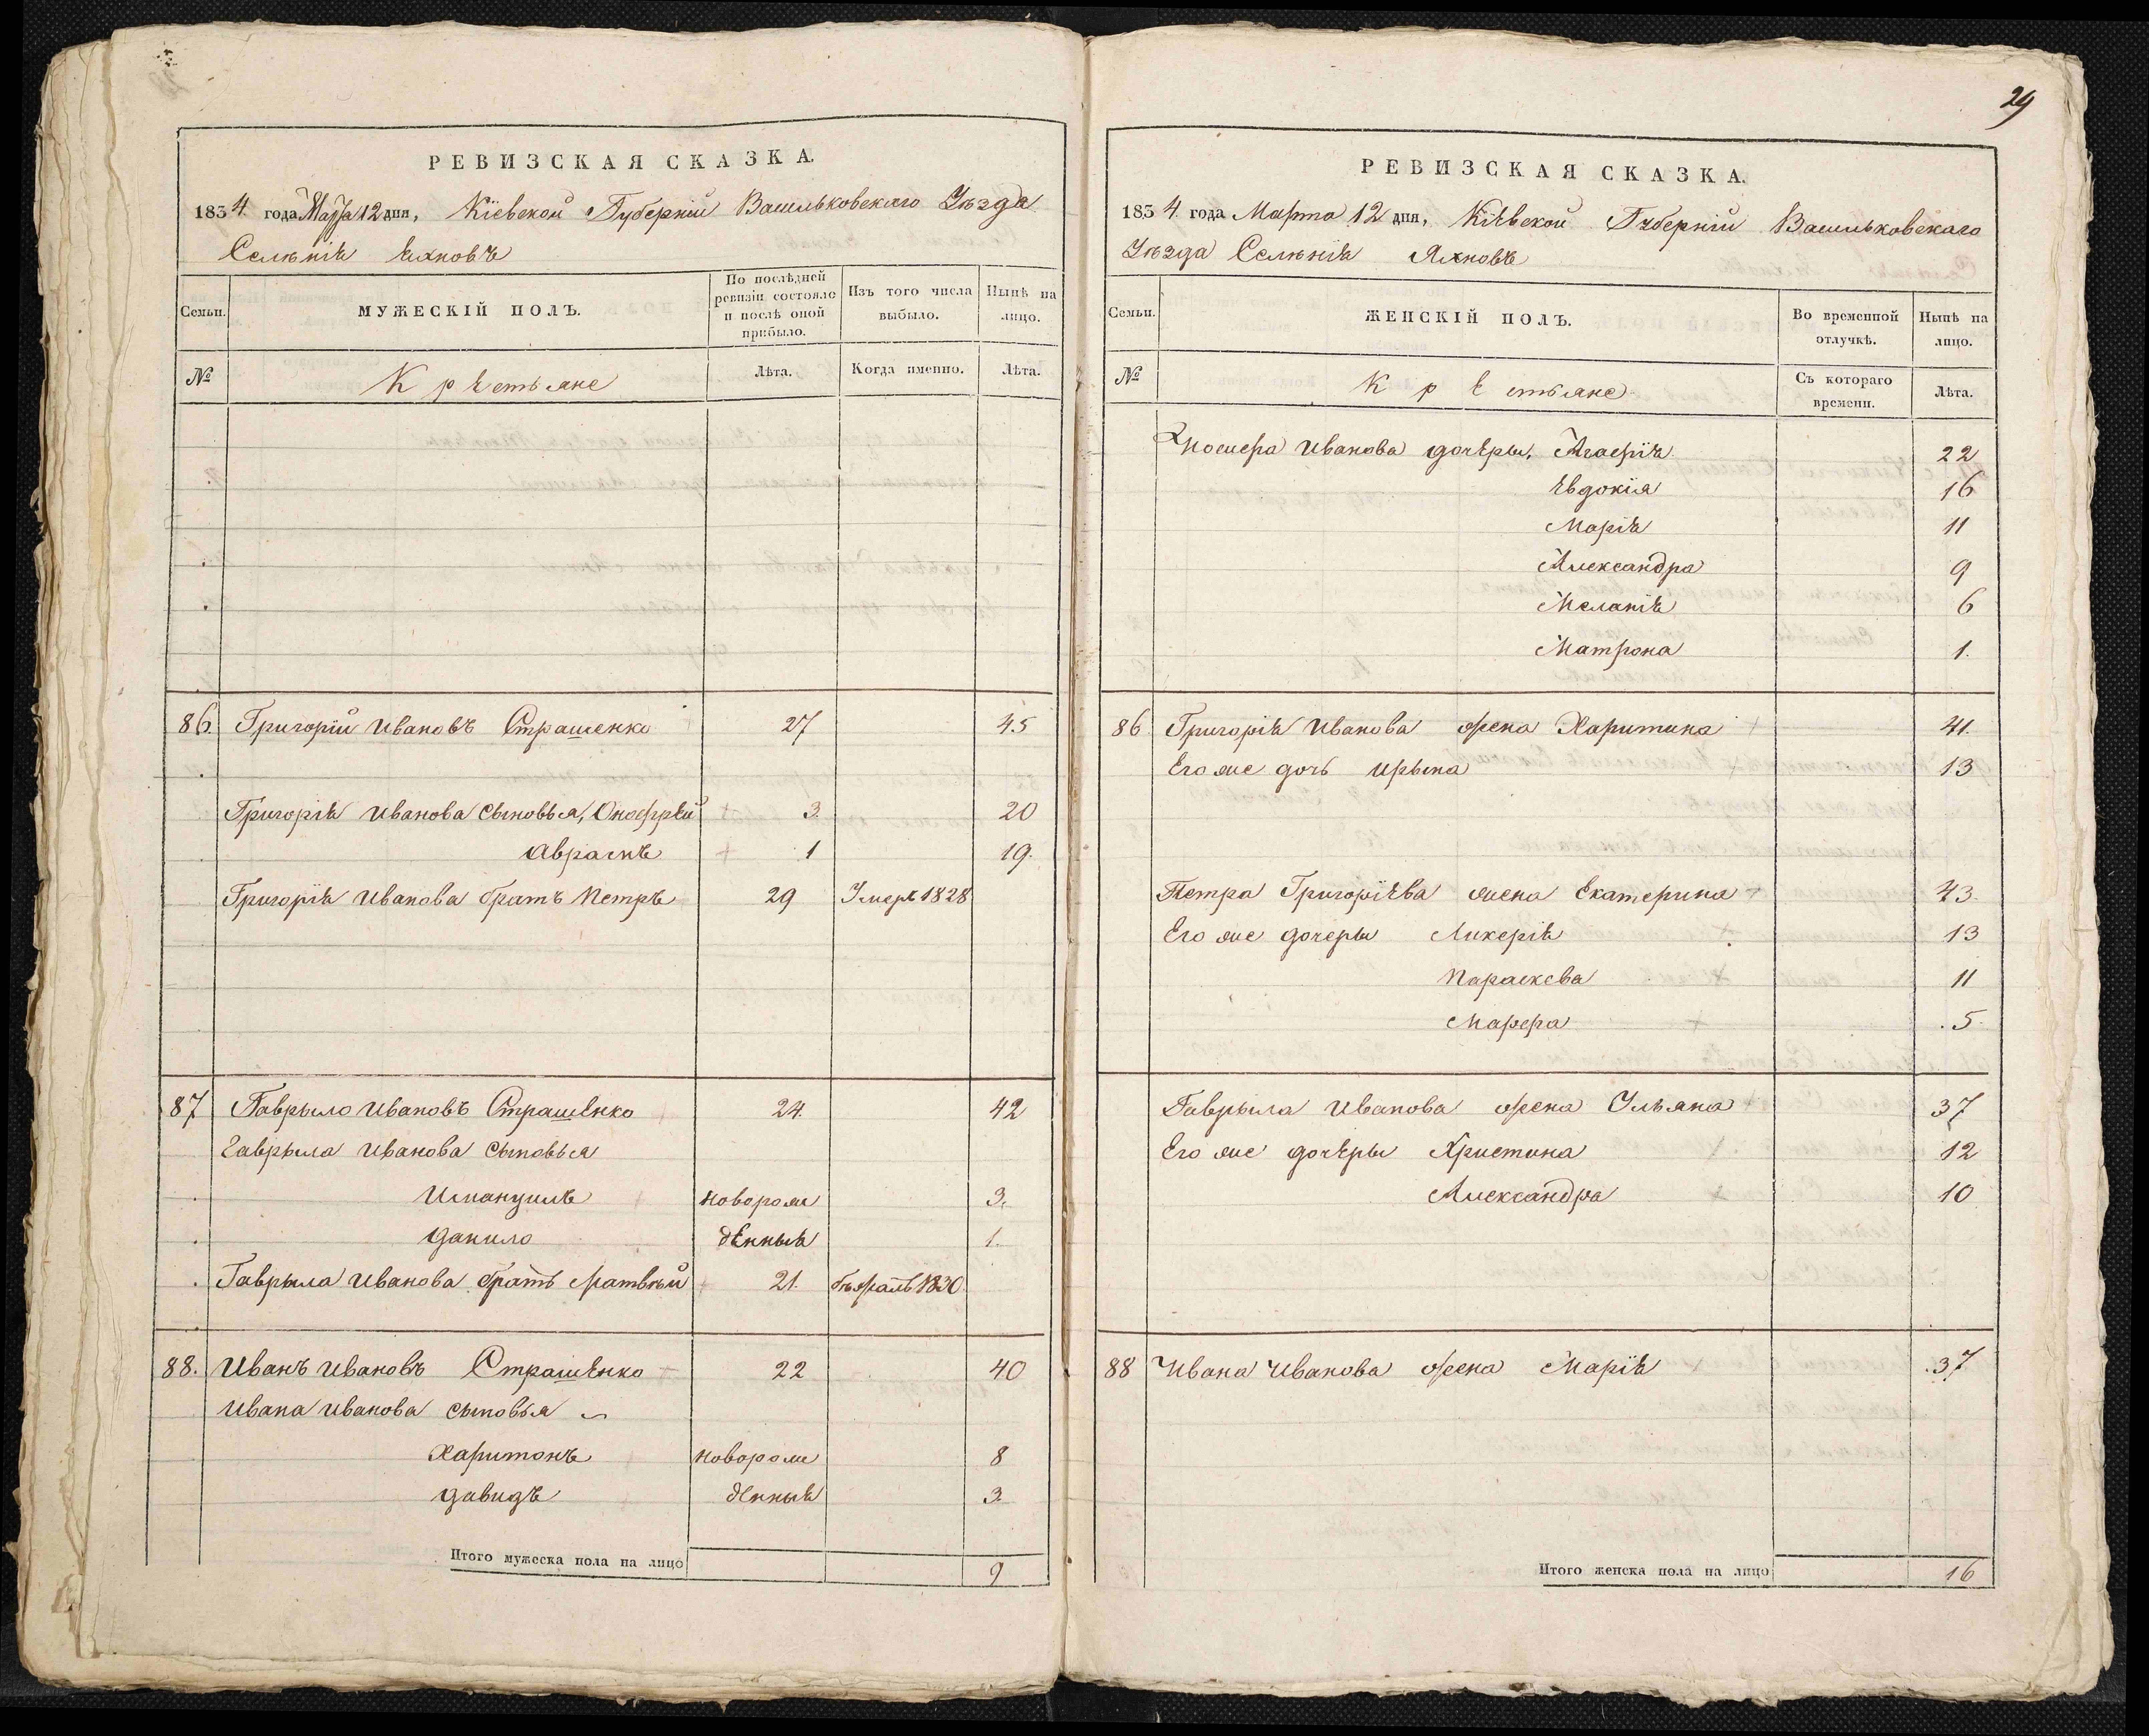 РЕВИЗСКАЯ СКАЗКА.
1834 года Марта 12 дня, Кіевской Губерніи Васильковскаго Уѣзда
Селѣнія Яхновъ
Семьи. МУЖЕСКІЙ ПОЛЪ. По послѣдней ревизіи состояло и послѣ оной прибыло. Изъ того числа выбыло. Нынѣ на лицо.
№ Крестьяне Лѣта. Когда именно. Лѣта.
86. Григорій Ивановъ Страшенко 27 45
Григорія Иванова сыновья, Онофрей 3. 20
Аврамъ 1 19.
Григорія Иванова братъ Петръ 29 Умеръ 1828
87 Гаврыло Ивановъ Страшенко 24. 42
Гаврыла Иванова сыновья
Имануилъ новорож 3.
Данило денныя 1.
Гаврыла Иванова братъ Матвѣй 21. бѣжалъ 1830
88. Иванъ Ивановъ Страшенко 22 40
Ивана Иванова сыновья
Харитонъ новорож 8
Давидъ денныя 3
Итого мужеска пола на лицо 9
29
РЕВИЗСКАЯ СКАЗКА.
1834 года Марта 12 дня, Кіевской Губерніи Васильковскаго
Уѣзда Селѣнія Яхновъ
Семьи. ЖЕНСКІЙ ПОЛЪ. Во временной отлучкѣ. Нынѣ на лицо.
№ Крестьяне Съ котораго времени. Лѣта.
Иванова дочеры, Агафія 22
Евдокія 16
Марія 11
Александра 9
Меланія 6
Матрона 1.
86 Григорія Иванова жена Харитина 41.
Его же дочь Ирына 13
Петра Григоріева жена Екатерина 43.
Его же дочеры Ликерія 13
Параскева 11
Марфа 5.
Гаврыла Иванова жена Ульяна 37
Его же дочеры Христина 12
Александра 10
88 Ивана Иванова жена Марія 37
Итого женска пола на лицо 16